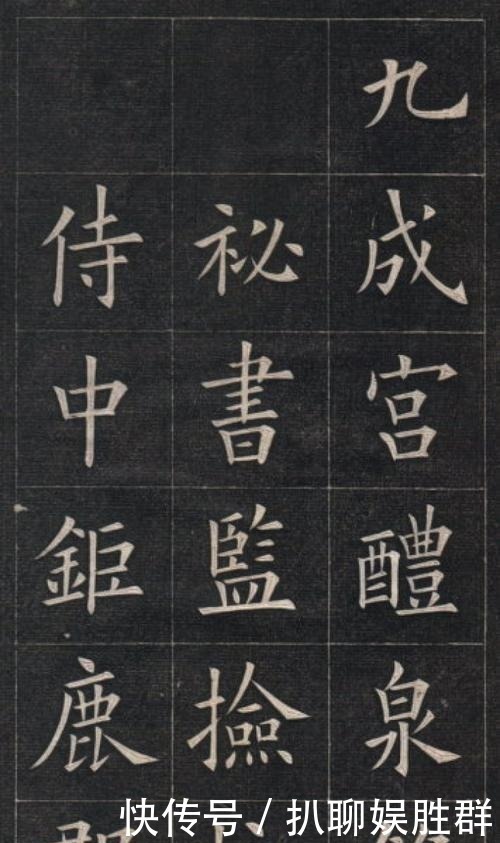 九成宮醴泉
祕書監撿
侍中鉅鹿
快传号/扒聊娱胜群